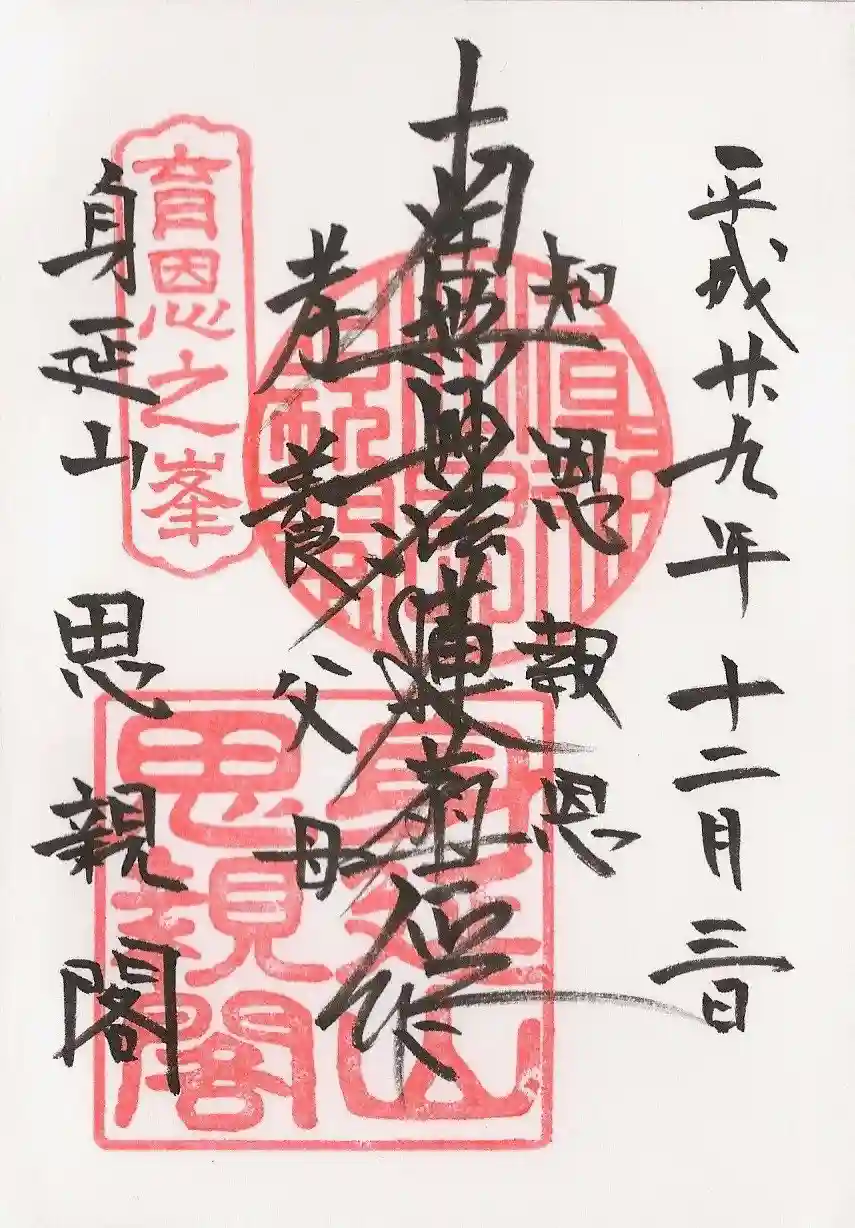 平成廿九年十二月三日
知恩報恩
南無妙法蓮華経
孝養父母
身延山思親閣
育恩之峯
身延山
思親閣